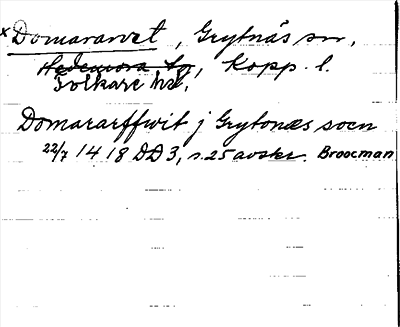 x Domararvet, Grytnäs sn,
Hedemora tg, Kopp. l.
Folkare hd,
Domararffwit j Grytonæs socn
22/7 1418 DD 3, s. 25 avskr. Broocman